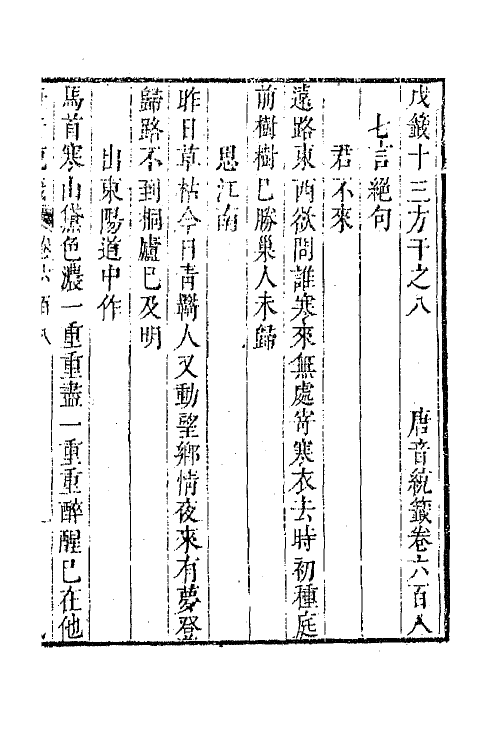 戊籤十三方干之八　　唐音統籤卷六百八
七言絕句
君不來
遠路東西欲問誰寒來無處寄寒衣去時初種庭
前樹樹巳勝巢人未歸
思江南
昨日草枯今日青羈人又動望鄉情夜來有夢登
歸路不到桐廬巳及明
出東陽道中作
馬首寒山黛色濃一重重盡一重重醉醒巳在他